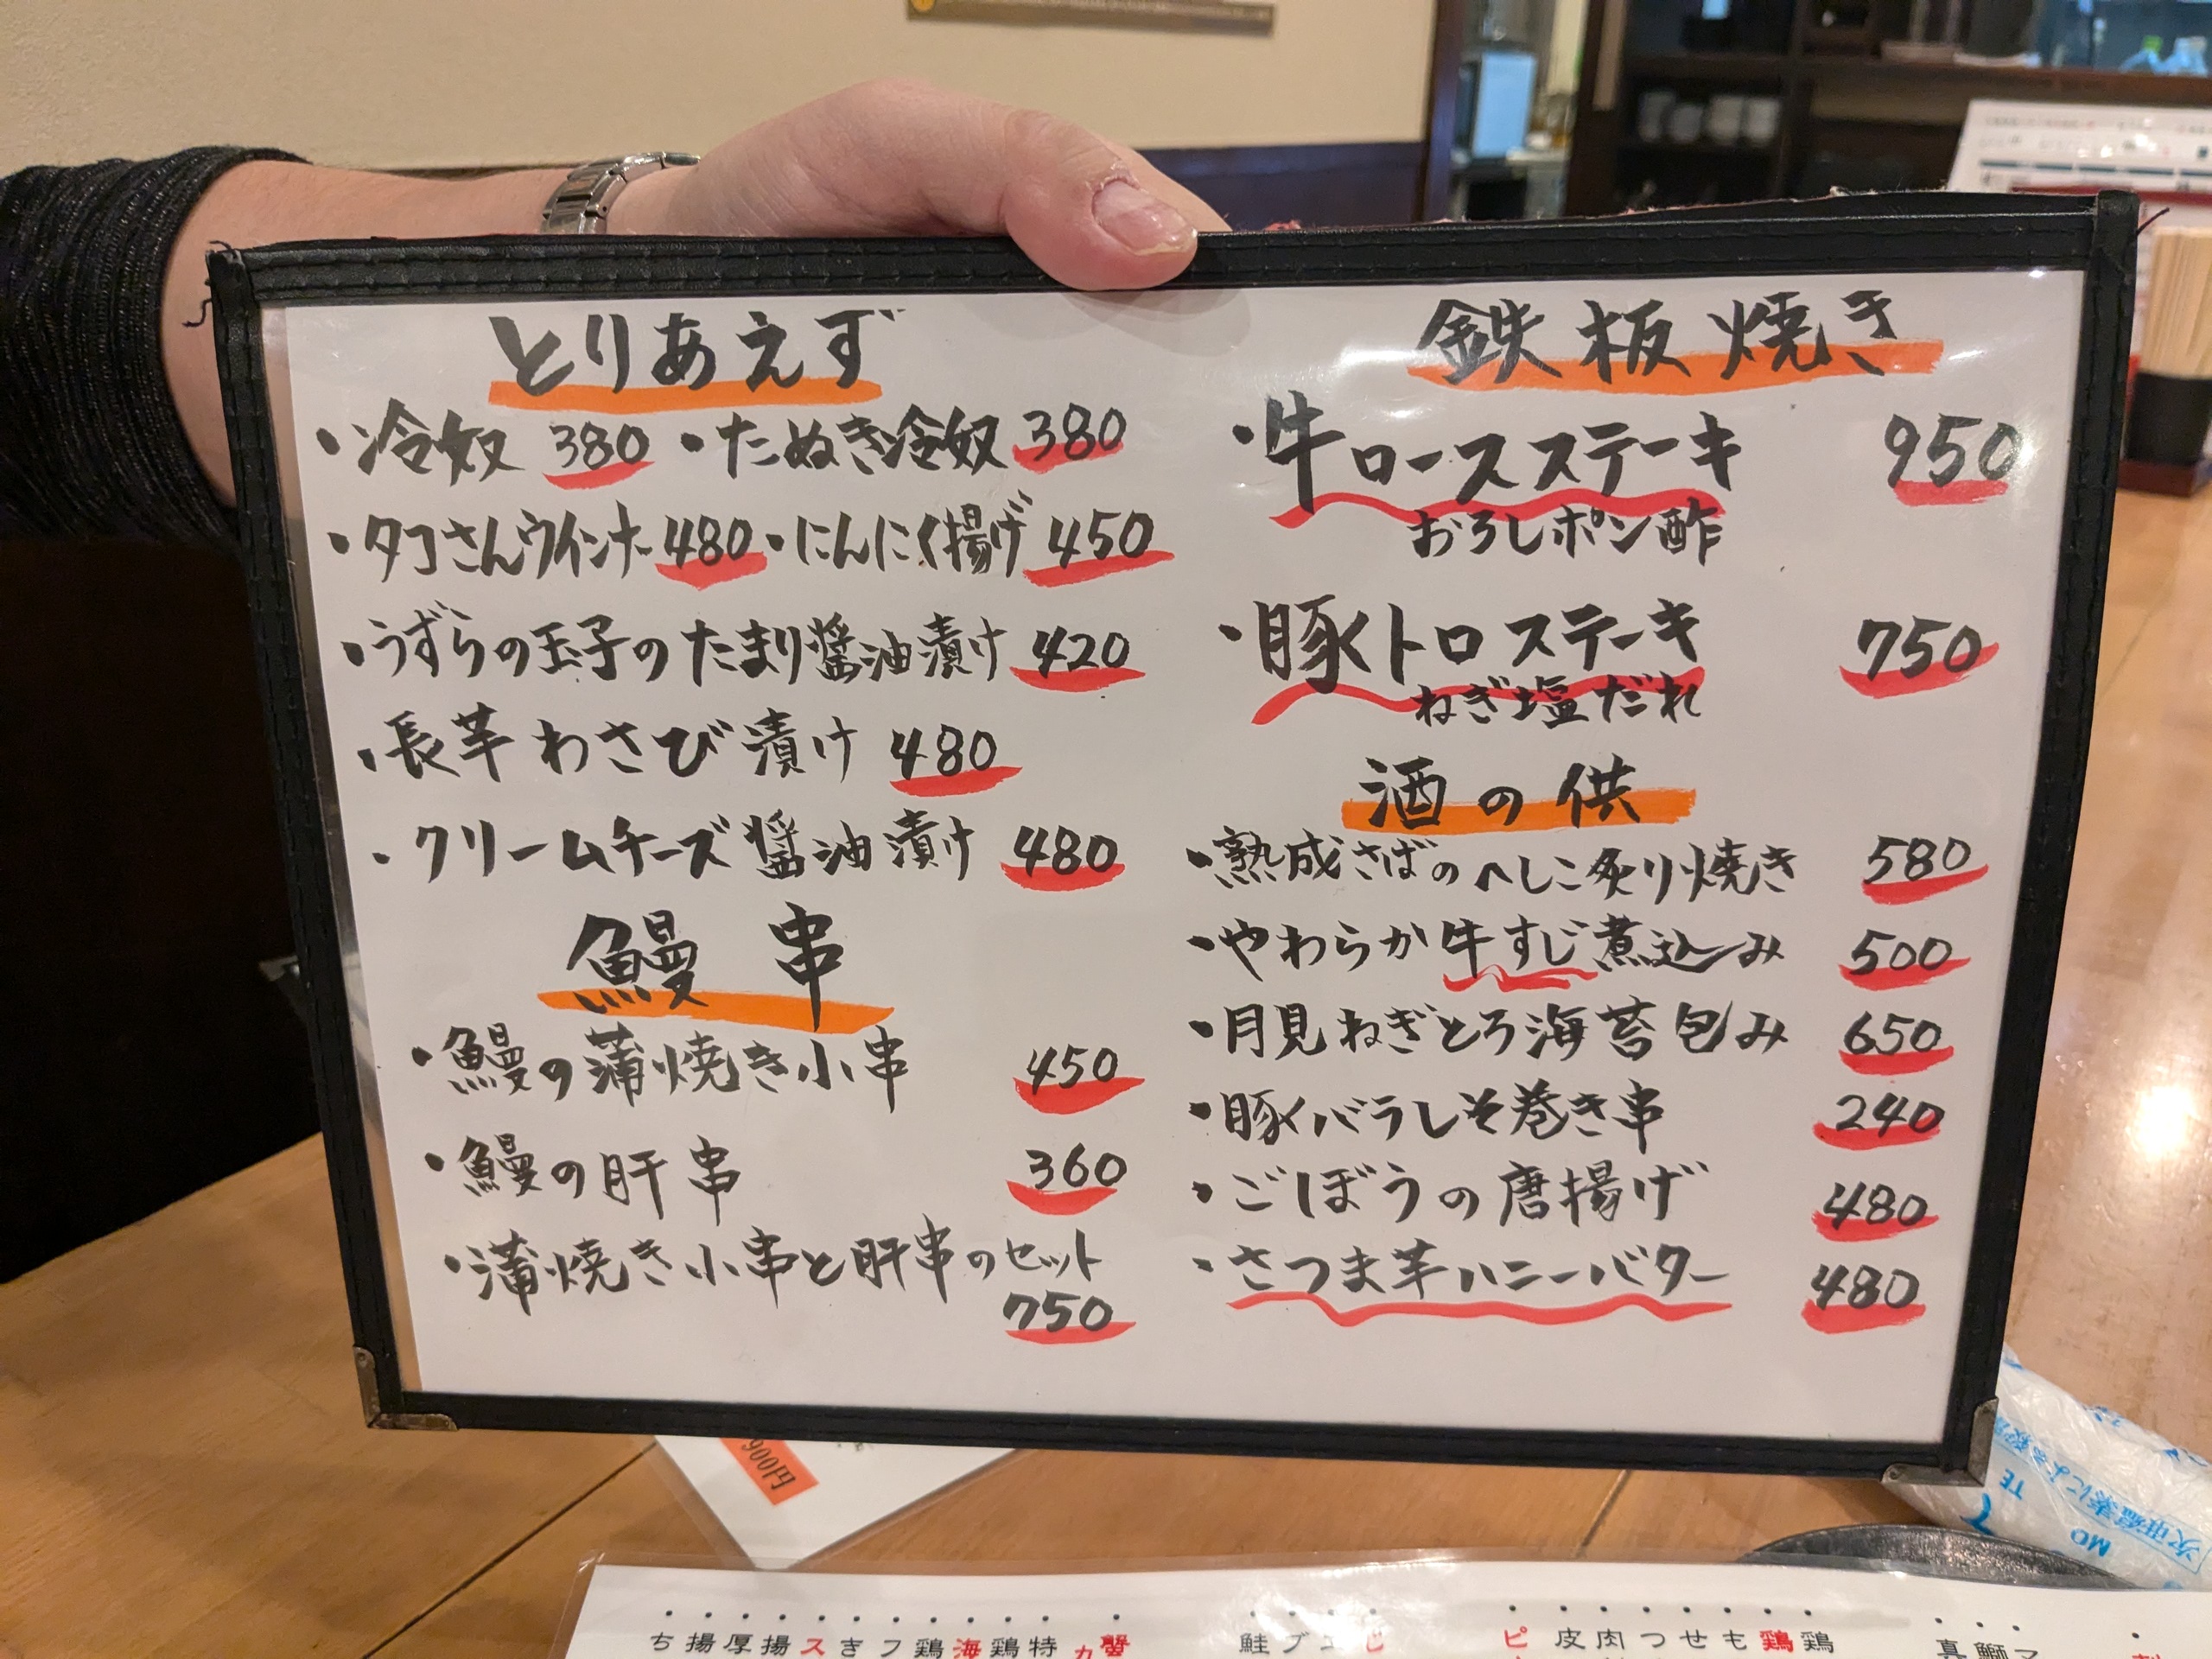 とりあえず
・冷奴 380 ・たぬき冷奴 380
・タコさんウインナー 480 ・にんにく揚げ 450
・うずらの玉子のたまり醤油漬け 420
・長芋わさび漬け 480
・クリームチーズ醤油漬け 480
鰻串
・鰻の蒲焼き小串 450
・鰻の肝串 360
・蒲焼き小串と肝串のセット
750
鉄板焼き
・牛ロースステーキ 950
おろしポン酢
・豚トロステーキ 750
ねぎ塩だれ
酒の供
・熟成さばのへしこ炙り焼き 580
・やわらか牛すじ煮込み 500
・月見ねぎとろ海苔包み 650
・豚バラしそ巻き串 240
・ごぼうの唐揚げ 480
・さつま芋ハニーバター 480
900円